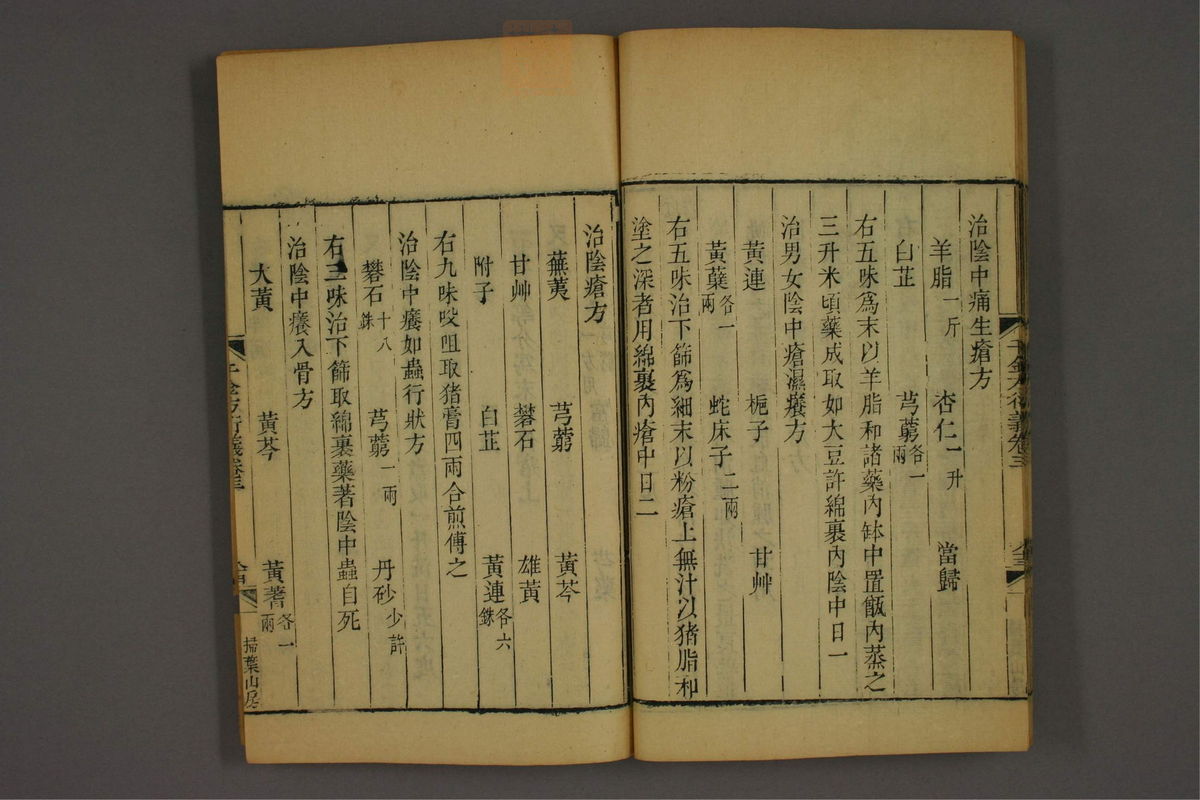 治陰中痛生瘡方
羊脂一斤 杏仁一升 當歸
白芷 芎藭各一兩
右五味爲末以羊脂和諸藥內缽中置飯內蒸之
三升米頃藥成取如大豆許綿裹內陰中日一
治男女陰中瘡濕癢方
黃連 梔子 甘艸
黃蘗各一兩 蛇床子二兩
右五味治下篩爲細末以粉瘡上無汁以猪脂和
塗之深者用綿裹內瘡中日二
千金方衍義卷三
治陰瘡方
蕪荑 芎藭 黃芩
甘艸 礬石 雄黃
附子 白芷 黃連各六銖
右九味㕮咀取猪膏四兩合煎傅之
治陰中癢如蟲行狀方
礬石十八銖 芎藭一兩 丹砂少許
右三味治下篩取綿裹藥著陰中蟲自死
治陰中癢入骨方
大黃 黃芩 黃蓍各一兩
千金方衍義卷三
掃葉山房